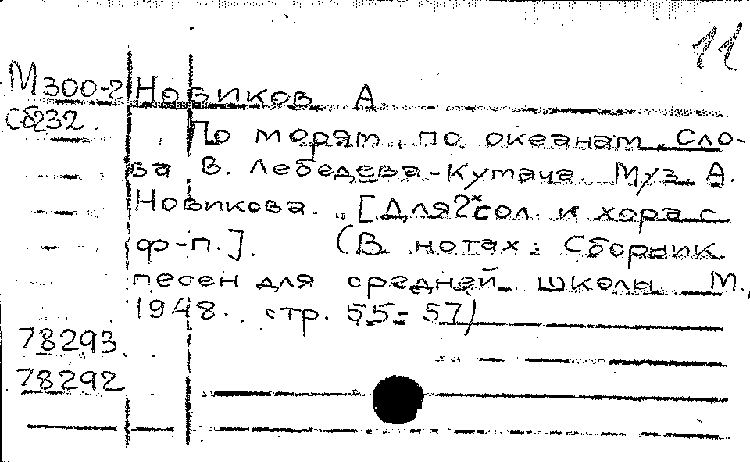 11
М300-2 Новиков А
Сб232. По морям, по океанам. Сло-
ва В. Лебедева-Кумача. Муз. А.
Новикова. [Для 2х сол. и хора с
ф-п.]. (В нотах: Сборник
песен для средней школы. М.,
1948. стр. 55-57)
78293
78292